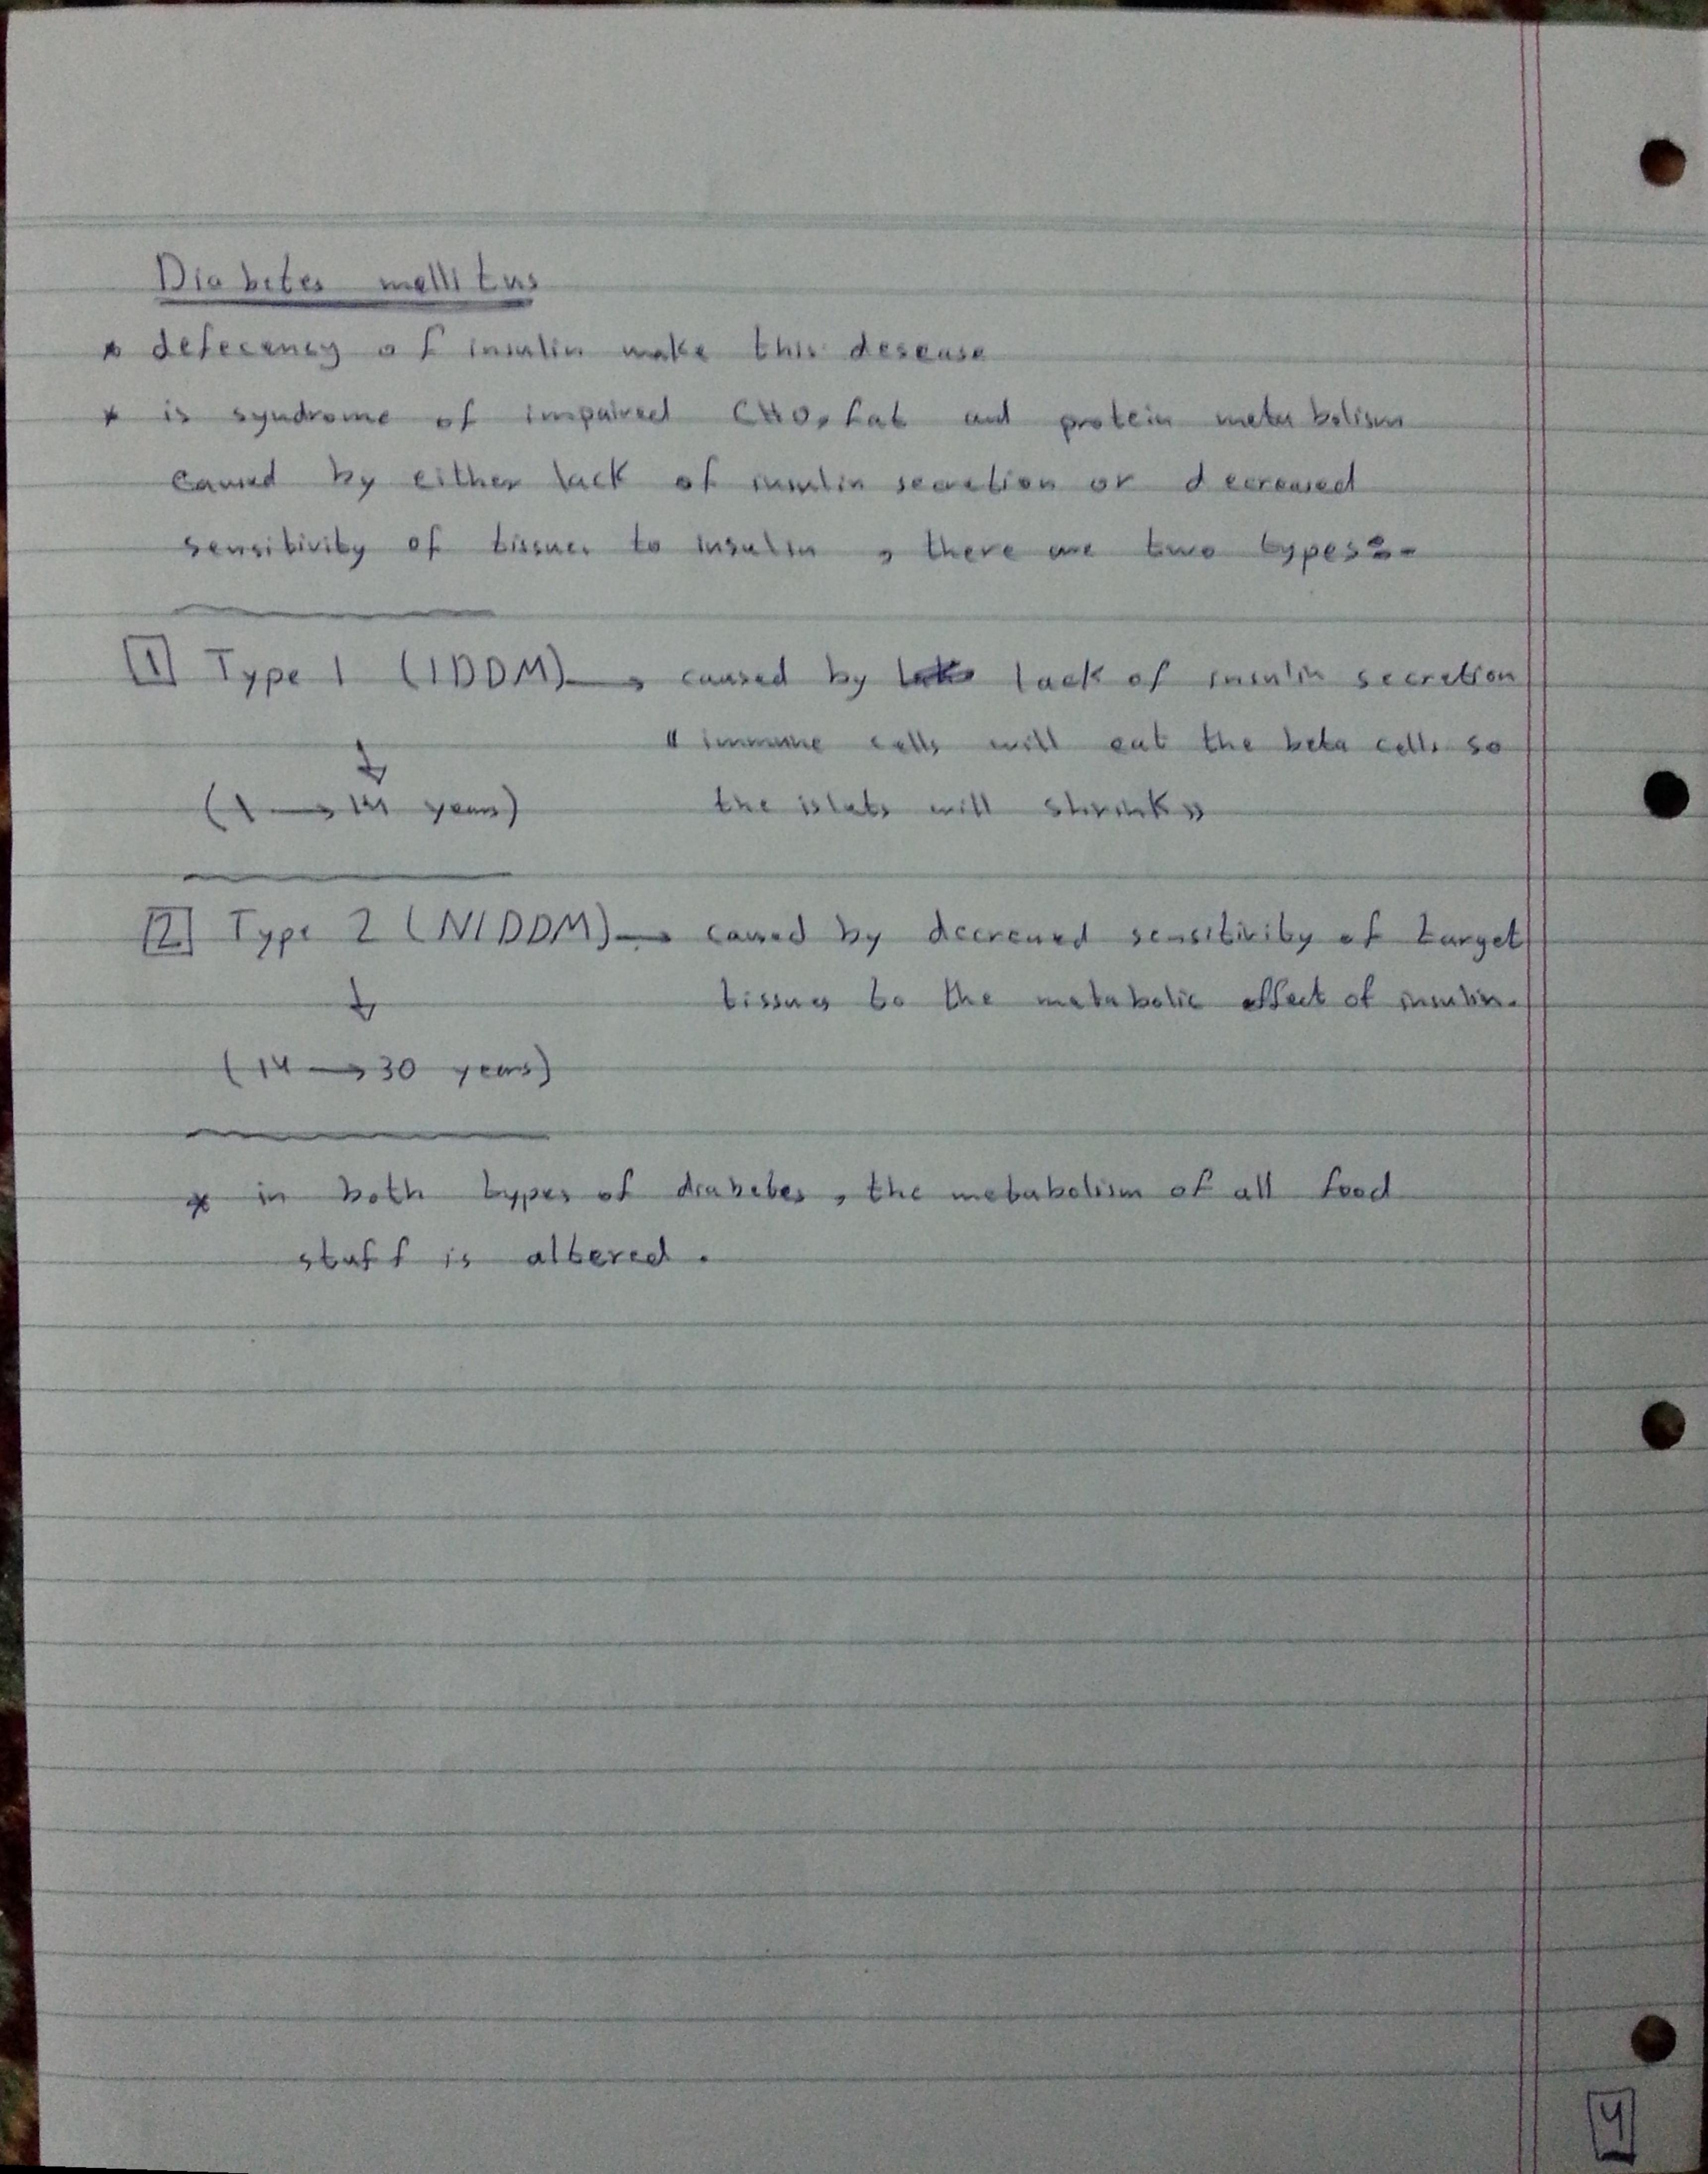 Diabetes mellitus
* defecency of insulin make this desease
* is syndrome of impaired CHO, fat and protein metabolism
caused by either lack of insulin secretion or decreased
sensitivity of tissues to insulin , there are two types:-
1 Type 1 (IDDM) → caused by lack of insulin secretion
↓ " immune cells will eat the beta cells so
(1 → 14 years) the islets will shrink »
2 Type 2 (NIDDM) → caused by decreased sensitivity of target
↓ tissues to the metabolic effect of insulin.
(14 → 30 years)
* in both types of diabetes , the metabolism of all food
stuff is altered .
4